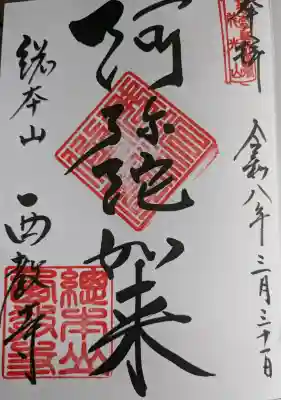 奉拝
令和八年三月三十一日
阿弥陀如来
総本山
西教寺
總本山
西教寺